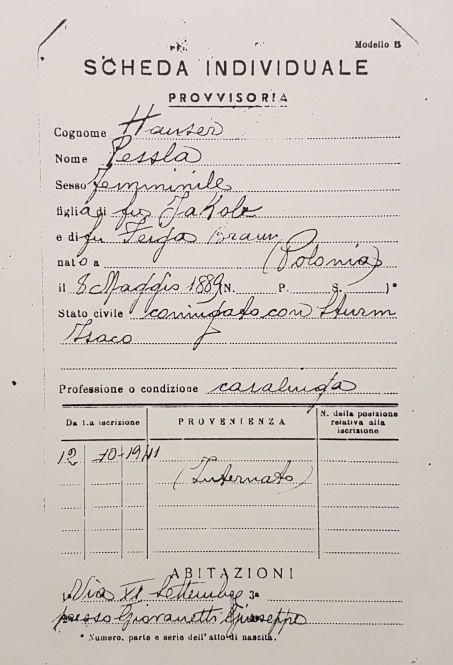 Modello B
SCHEDA INDIVIDUALE
PROVVISORIA
Cognome Hauser
Nome Pessla
Sesso femminile
figlia di fu Jakob
e di fu Feiga Braun
nato a (Polonia)
il 8 Maggio 1889 (N. P. S. )*
Stato civile coniugato con Sturm
Isaco
Professione o condizione casalinga
Da 1.a iscrizione PROVENIENZA N. della posizione relativa alla iscrizione
12 10-1941
(Internato)
ABITAZIONI
Via XX Settembre
presso Giovanetti Giuseppe
* Numero, parte e serie dell'atto di nascita.